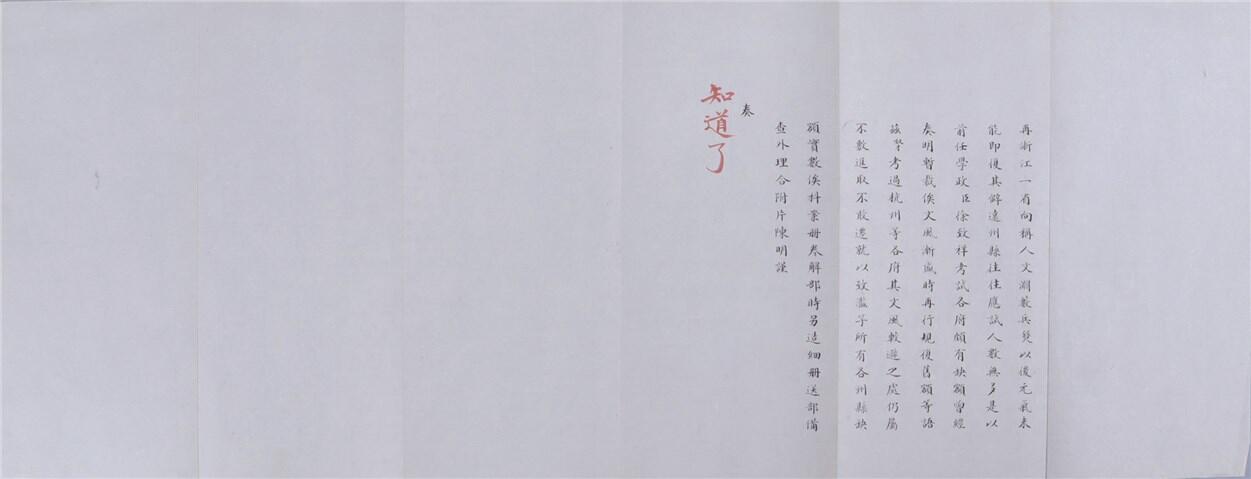 再浙江一省向稱人文淵藪兵燹以後元氣未
能即復其僻遠州縣往往應試人數無多是以
前任學政臣徐致祥考試各府頗有缺額曾經
奏明暫裁俟文風漸盛時再行規復舊額等語
茲臣考過杭州等各府其文風較遜之處仍屬
不敷進取不敢遷就以致濫竽所有各州縣缺
額實數俟科案冊卷解部時另造細冊送部備
查外理合附片陳明謹
奏
知道了